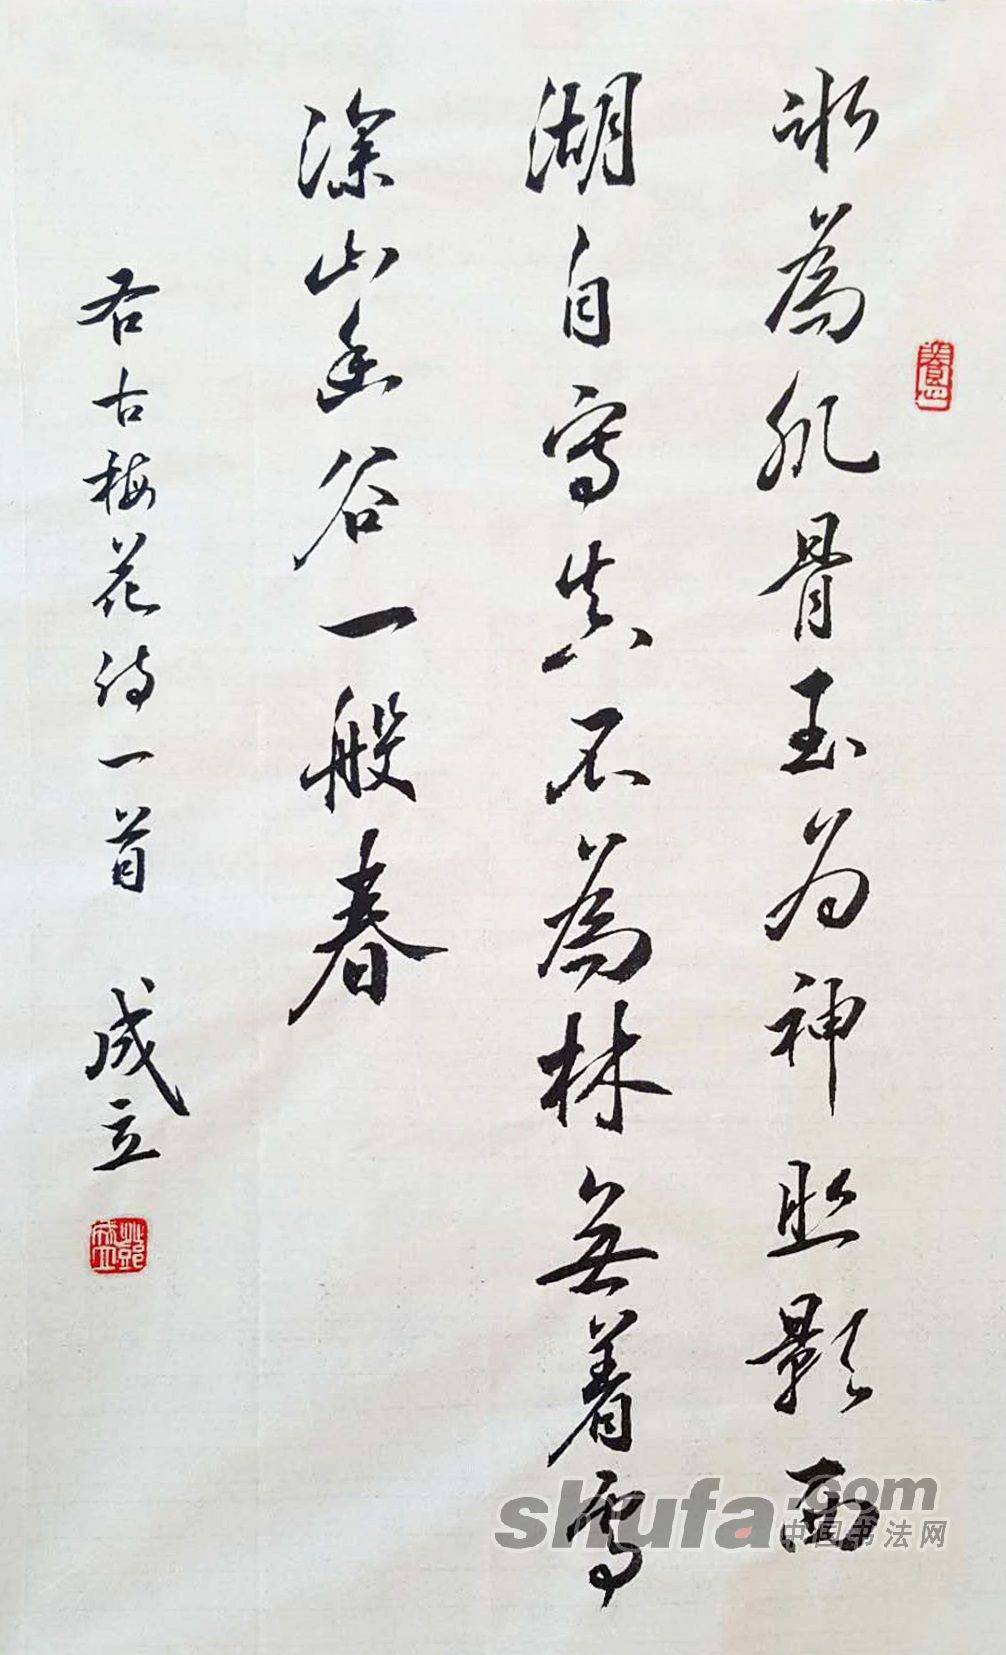 冰為肌骨玉为神照影西
湖自寫真不為林無着雪
深山幽谷一般春
右古梅花诗一首 成立
shufa.com
中国书法网